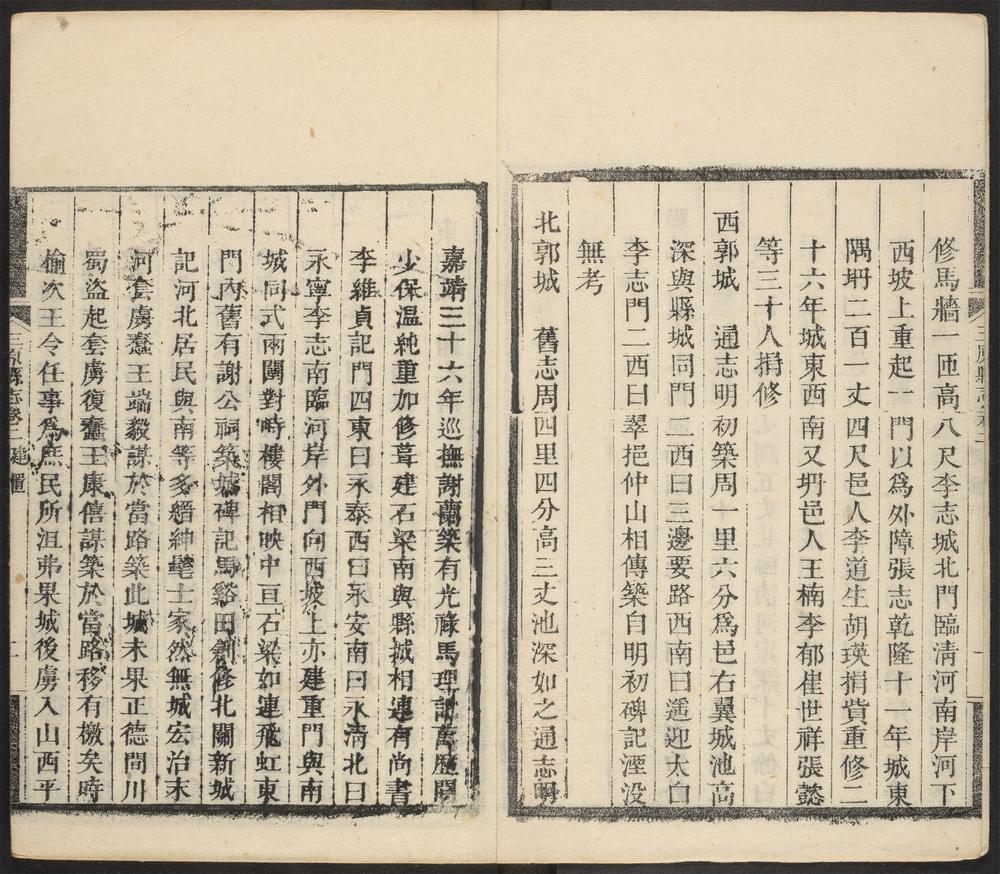 修馬牆一匝高八尺李志城北門臨清河南岸河下
西坡上重起一門以爲外障張志乾隆十一年城東
隅坍二百一丈四尺邑人李道生胡瑛捐貲重修二
十六年城東西南又坍邑人王楠李郁崔世祥張懿
等三十人捐修
西郭城　通志明初築周一里六分爲邑右翼城池高
深與縣城同門二西曰三邊要路西南曰遥迎太白
李志門二西曰翠挹仲山相傳築自明初碑記湮没
無考
北郭城　舊志周四里四分高三丈池深如之通志明
嘉靖三十六年巡撫謝蘭築有光祿馬理記萬歷間
少保温純重加修葺建石梁南與縣城相連有尚書
李維貞記門四東曰永泰西曰永安南曰永清北曰
永寧李志南臨河岸外門向西坡上亦建重門與南
城同式兩闗對時樓閣相映中亘石梁如連飛虹東
門內舊有謝公祠築城碑記馬谿田創修北關新城
記河北居民與南等多縉紳髦士家然無城宏治末
河套虜蠢王端毅謀於當路築此城未果正德間川
蜀盜起套虜復蠢王康僖謀築於當路移有檄矣時
榆次王令任事爲庶民所沮弗果城後虜入山西平
三原縣志卷二 建置